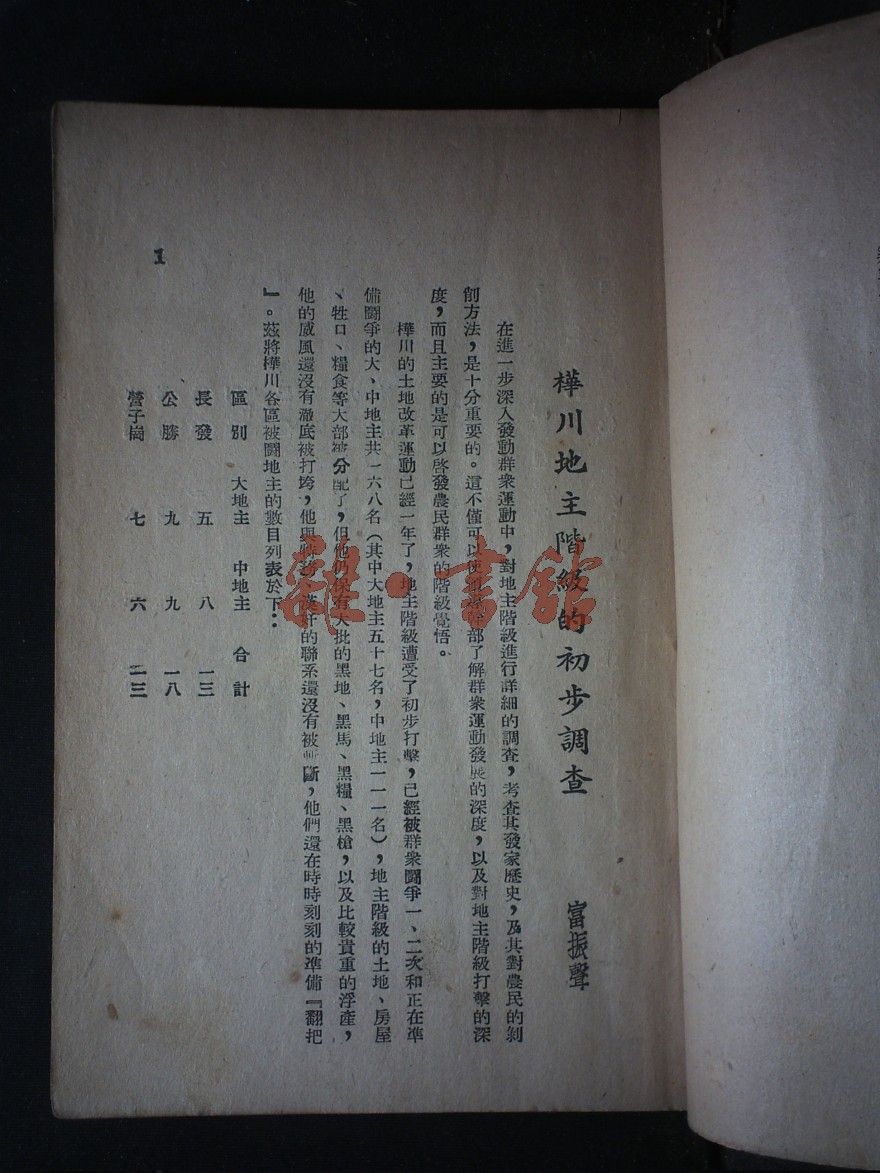 樺川地主階級的初步調查
富振聲
在進一步深入發動群衆運動中，對地主階級進行詳細的調查，考查其發家歷史，及其對農民的剝
削方法，是十分重要的。這不僅可以使 部了解群衆運動發展的深度，以及對地主階級打擊的深
度，而且主要的是可以啓發農民群衆的階級覺悟。
樺川的土地改革運動已經一年了，地主階級遭受了初步打擊，已經被群衆鬪爭一、二次和正在準
備鬪爭的大、中地主共一六八名（其中大地主五十七名，中地主一一一名），地主階級的土地、房屋
、牲口、糧食等大部被分配了，但他仍保有大批的黑地、黑馬、黑糧、黑槍，以及比較貴重的浮產，
他的威風還沒有澈底被打垮，他與 、漢奸的聯系還沒有被斬斷，他們還在時時刻刻的準備『翻把
』。茲將樺川各區被鬪地主的數目列表於下：
區別 大地主 中地主 合計
長發 五 八 一三
公勝 九 九 一八
營子崗 七 六 一三
1
雜·書館